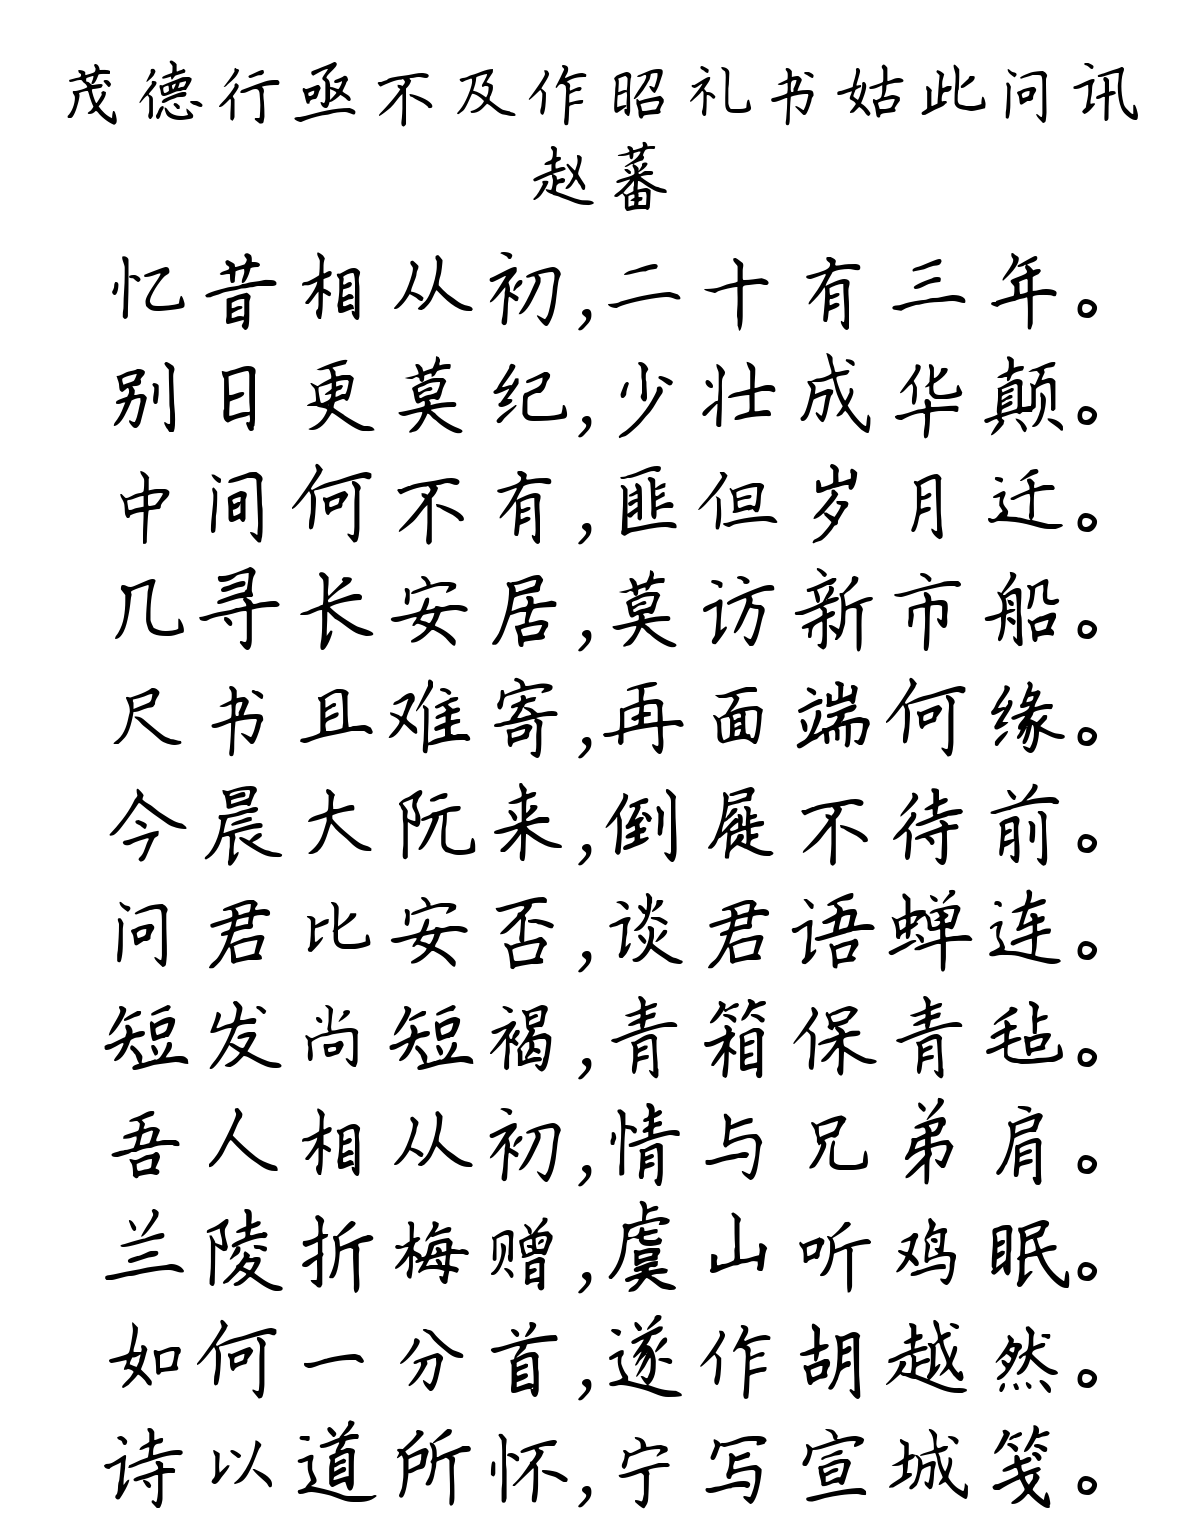 茂德行亟不及作昭礼书姑此问讯
赵蕃
忆昔相从初,二十有三年。
别日更莫纪,少壮成华颠。
中间何不有,匪但岁月迁。
几寻长安居,莫访新市船。
尺书且难寄,再面端何缘。
今晨大阮来,倒屣不待前。
问君比安否,谈君语蝉连。
短发尚短褐,青箱保青毡。
吾人相从初,情与兄弟肩。
兰陵折梅赠,虞山听鸡眠。
如何一分首,遂作胡越然。
诗以道所怀,宁写宣城笺。